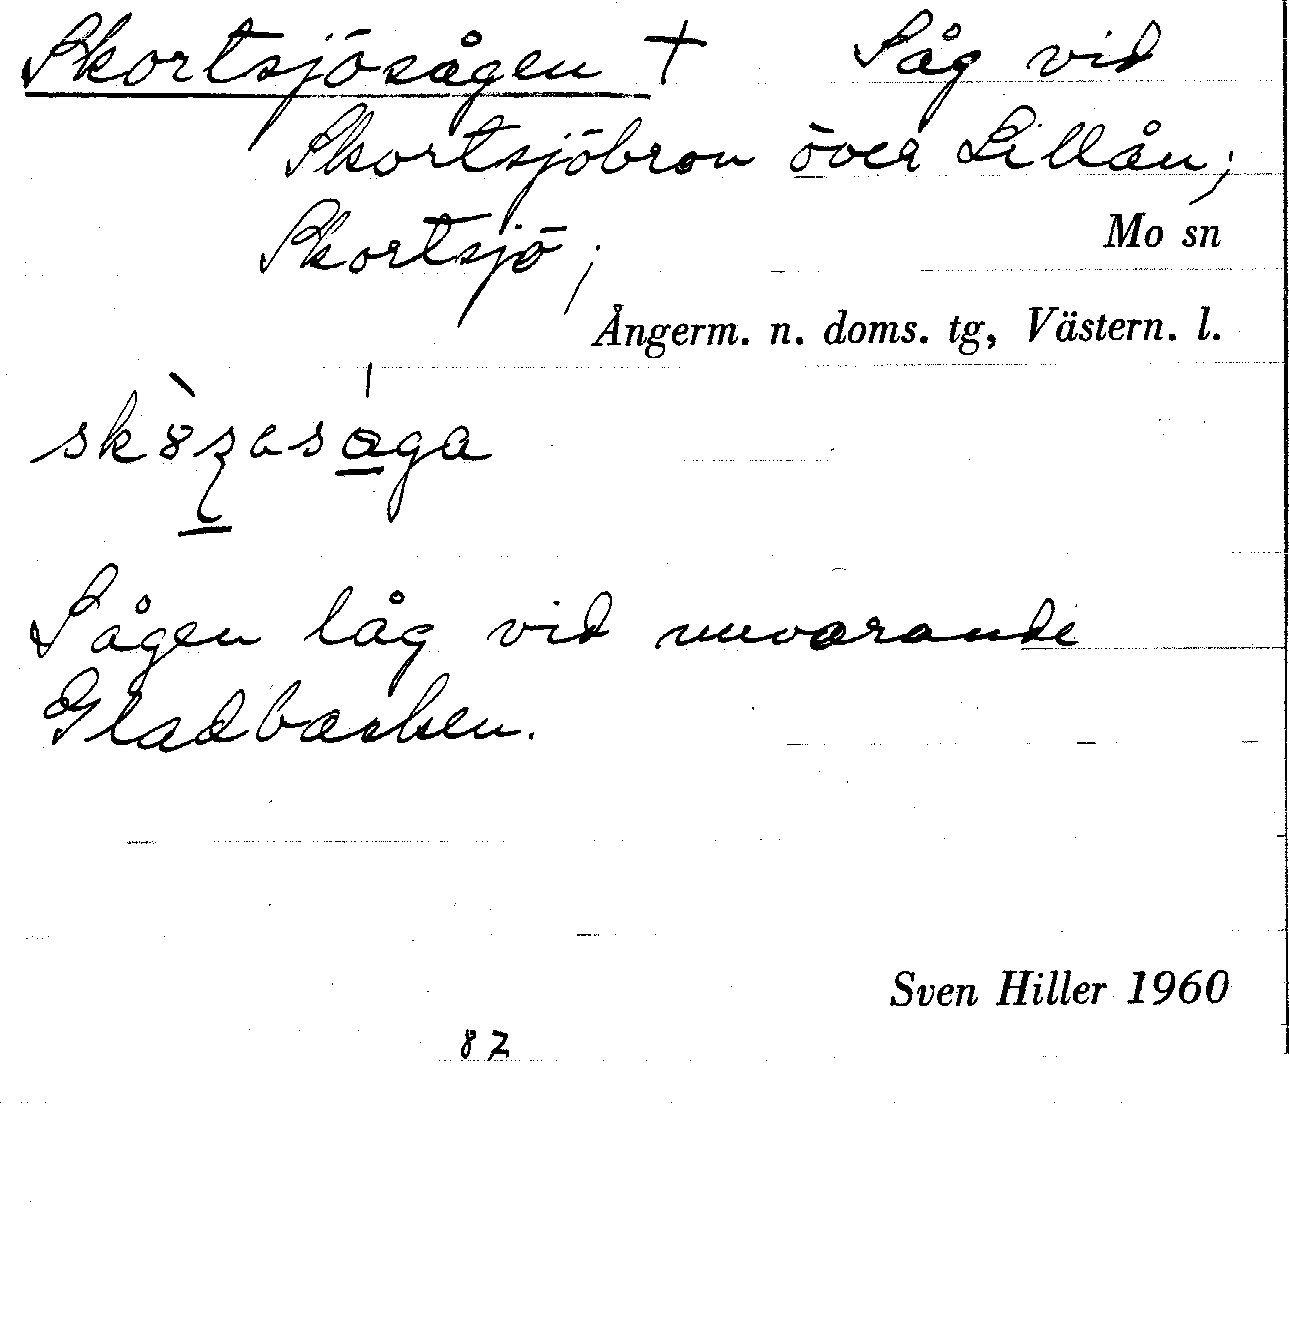 Skortsjösågen † Såg vid
Skortsjöbron över Lillån;
Skortsjö;
Mo sn
Ångerm. n. doms. tg, Västern. l.
Sågen låg vid nuvarande
Gladbacken.
Sven Hiller 1960
82